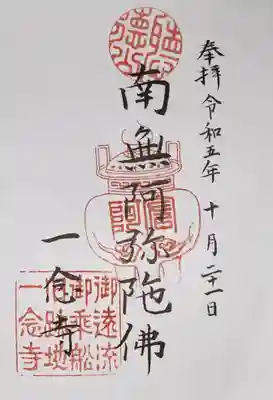 奉拝 令和五年 十月二十一日
南無阿弥陀佛
一念寺
御遠流
御乗船
地
一念寺